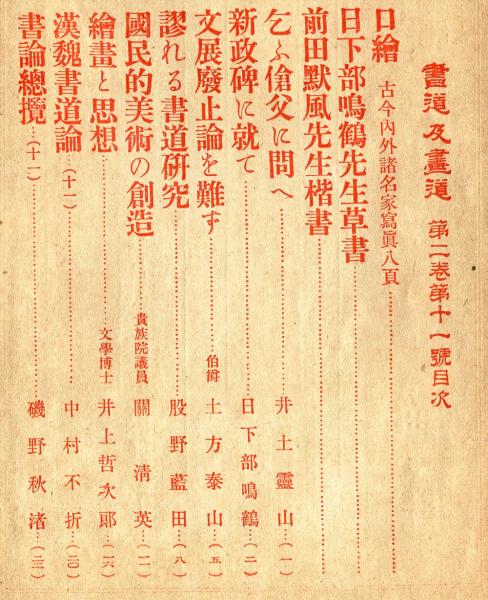 書道及畫道 第二卷第十一號目次
口繪 古今內外諸名家寫眞八頁
日下部鳴鶴先生草書
前田默風先生楷書
乞ふ傖父に問へ 井土靈山(一)
新政碑に就て 日下部鳴鶴(二)
文展廢止論を難ず 伯爵 土方泰山(五)
謬れる書道硏究 股野藍田(八)
國民的美術の創造 貴族院議員 關淸英(一一)
繪畫と思想 文學博士 井上哲次郞(一六)
漢魏書道論(十一) 中村不折(二〇)
書論總攬(十一) 磯野秋渚(二三)